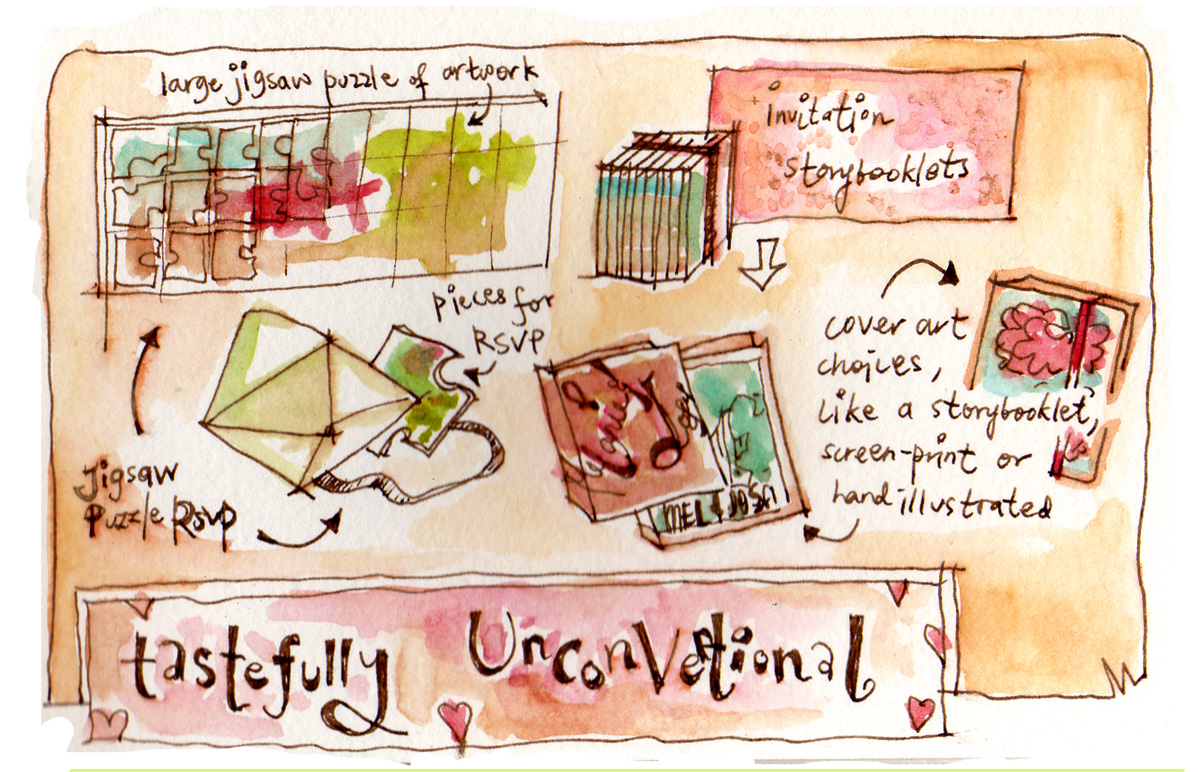 large jigsaw puzzle of artwork
invitation
storybooklets
pieces for
RSVP
Jigsaw
Puzzle RSVP
MEL & JOSH
cover art
choices,
like a storybooklet,
screen-print or
hand illustrated
tastefully UnconVentional